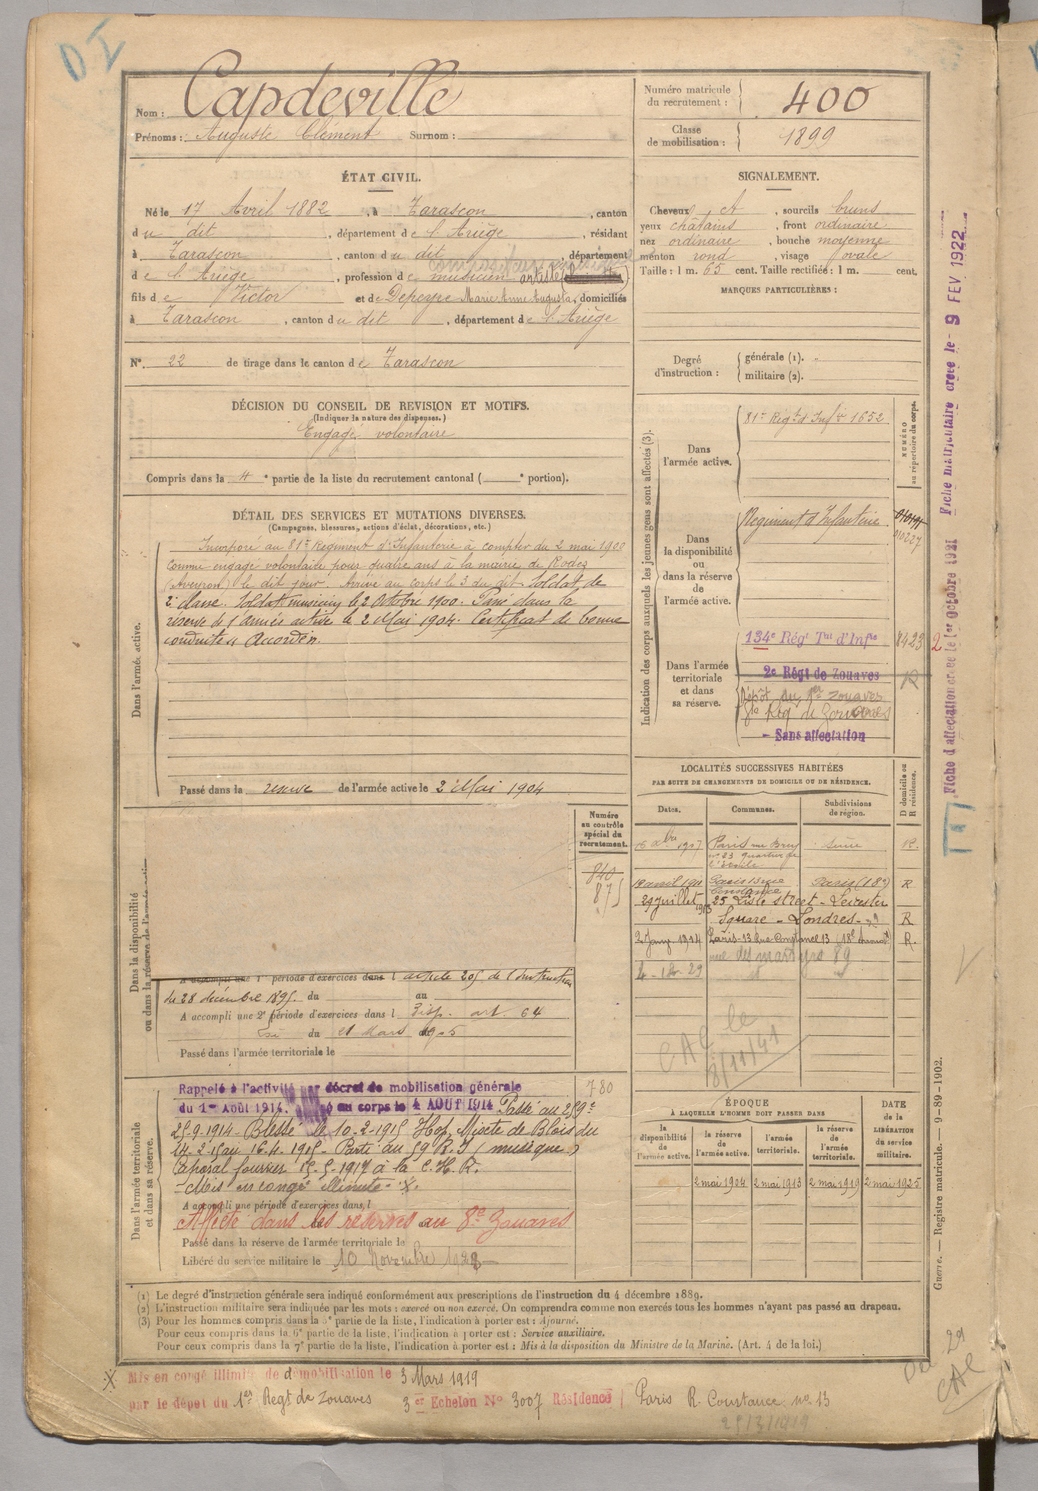 D.I
Nom : Capdeville
Prénoms : Auguste Clément Surnom :
Numéro matricule du recrutement : 400
Classe de mobilisation : 1899
ÉTAT CIVIL.
Né le 17 Avril 1882, à Tarascon, canton
du dit, département de l'Ariège, résidant
à Tarascon, canton du dit, département
de l'Ariège, profession de musicien artiste
fils de Victor et de Depeyre Marie Anne Augusta, domiciliés
à Tarascon, canton du dit, département de l'Ariège
N°. 22 de tirage dans le canton de Tarascon
SIGNALEMENT.
Cheveux et, sourcils bruns
yeux châtains, front ordinaire
nez ordinaire, bouche moyenne
menton rond, visage ovale
Taille : 1 m. 65 cent. Taille rectifiée : 1 m. cent.
MARQUES PARTICULIÈRES :
Degré d'instruction : générale (1).
militaire (2).
DÉCISION DU CONSEIL DE REVISION ET MOTIFS.
(Indiquer la nature des dispenses.)
Engagé volontaire
Compris dans la 4e partie de la liste du recrutement cantonal ( e portion).
DÉTAIL DES SERVICES ET MUTATIONS DIVERSES.
(Campagnes, blessures, actions d'éclat, décorations, etc.)
Dans l'armée active.
Incorporé au 81e Régiment d'Infanterie à compter du 2 mai 1900
comme engagé volontaire pour quatre ans à la mairie de Rodez
(Aveyron) le dit jour. Arrivé au corps le 3 du dit. Soldat de
2e classe. Soldat musicien le 2 Octobre 1900. Passé dans la
réserve de l'armée active le 2 Mai 1904. Certificat de bonne
conduite « Accordé ».
Passé dans la réserve de l'armée active le 2 Mai 1904
Indication des corps auxquels les jeunes gens sont affectés (3).
NUMÉRO au répertoire du corps.
Dans l'armée active.
81e Régt d'Infie 1652
Dans la disponibilité ou dans la réserve de l'armée active.
Régiment d'Infanterie
Dans l'armée territoriale et dans sa réserve.
134e Régt Tal d'Infie 8423
2e Régt de Zouaves R
Dépôt du 1er Zouaves
8e Rég de Zouaves
- Sans affectation
LOCALITÉS SUCCESSIVES HABITÉES
PAR SUITE DE CHANGEMENTS DE DOMICILE OU DE RÉSIDENCE.
Dates. Communes. Subdivisions de région. D domicile ou R résidence.
1907 Paris rue Seine R.
n° 23 quartier de
l'étoile
12 avril 1911 Paris 13 rue Constance Paris (18e) R
29 juillet 1913 25 Lisle street - Leicester
Square - Londres - R
2 Janv. 1914 Paris - 13 Rue Constance 13 18e R.
rue des martyrs 89
CAC le
8/11/41
Dans la disponibilité ou dans la réserve de l'armée active.
Numéro au contrôle spécial du recrutement.
840
875
A accompli une 1re période d'exercices dans l article 205 de l'instruction
de 28 décembre 1895. du au
A accompli une 2e période d'exercices dans l Disp. art. 64
du 21 Mars 1905
Passé dans l'armée territoriale le
Dans l'armée territoriale et dans sa réserve.
780
Rappelé à l'activité par décret de mobilisation générale
du 1er Août 1914. au corps le 4 AOUT 1914 Passé au 259e
25-9-1914 - Blessé le 10.2.1915 Hop. Mixte de Blois du
14.2.15 au 16.4.1915 - Parti au 59 R.I (musique)
Caporal fourrier 15-5-1917 à la C.H.R.
- Mis en congé illimité - X.
A accompli une période d'exercices dans l
Affecté dans les réserves au 8e Zouaves
Passé dans la réserve de l'armée territoriale le
Libéré du service militaire le 10 Novembre 1928
ÉPOQUE
À LAQUELLE L'HOMME DOIT PASSER DANS
la disponibilité de l'armée active. la réserve de l'armée active. l'armée territoriale. la réserve de l'armée territoriale. DATE de la LIBÉRATION du service militaire.
2 mai 1904 2 mai 1913 2 mai 1919 2 mai 1925
(1) Le degré d'instruction générale sera indiqué conformément aux prescriptions de l'instruction du 4 décembre 1889.
(2) L'instruction militaire sera indiquée par les mots : exercé ou non exercé. On comprendra comme non exercés tous les hommes n'ayant pas passé au drapeau.
(3) Pour les hommes compris dans la 5e partie de la liste, l'indication à porter est : Ajourné.
Pour ceux compris dans la 6e partie de la liste, l'indication à porter est : Service auxiliaire.
Pour ceux compris dans la 7e partie de la liste, l'indication à porter est : Mis à la disposition du Ministre de la Marine. (Art. 4 de la loi.)
X Mis en congé illimité de démobilisation le 3 Mars 1919
par le dépôt du 1er Régt de Zouaves 3er Echelon N° 3007 Résidence Paris R. Constance no 13
25/3/1919
Fiche d'affectation créée le 1er octobre 1921 Fiche matriculaire créée le - 9 FEV 1922
Guerre. — Registre matricule. — 9-89-1902.
29
CAC